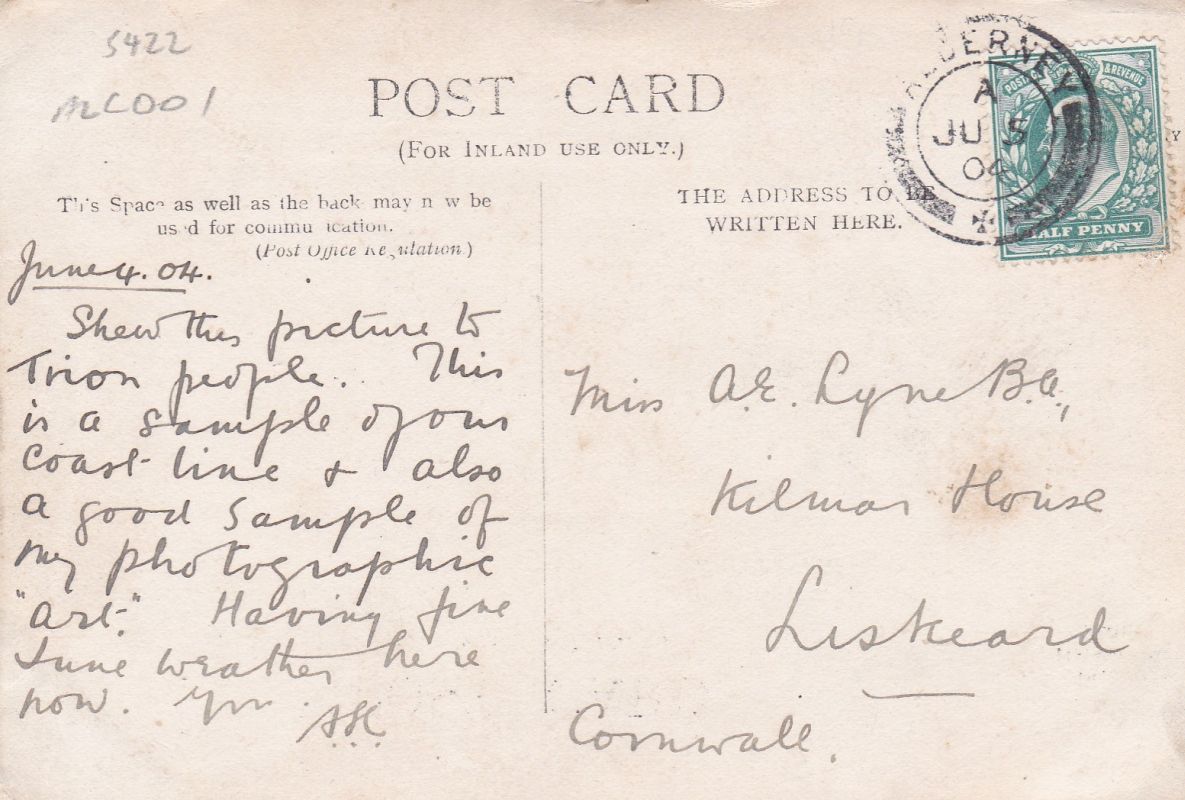 5422
ALC001
POST CARD
(FOR INLAND USE ONLY.)
This Space as well as the back may now be
used for communication.
(Post Office Regulation.)
THE ADDRESS TO BE
WRITTEN HERE.
ALDERNEY
A
JU 5
04
POSTAGE & REVENUE
HALF PENNY
June 4. 04.
Shew this picture to
Trion people. This
is a sample of our
coast-line & also
a good sample of
my photographic
"art." Having fine
June weather here
now. Yrs.
Miss A.E. Lyne B.A.,
Kilmar House
Liskeard
Cornwall.